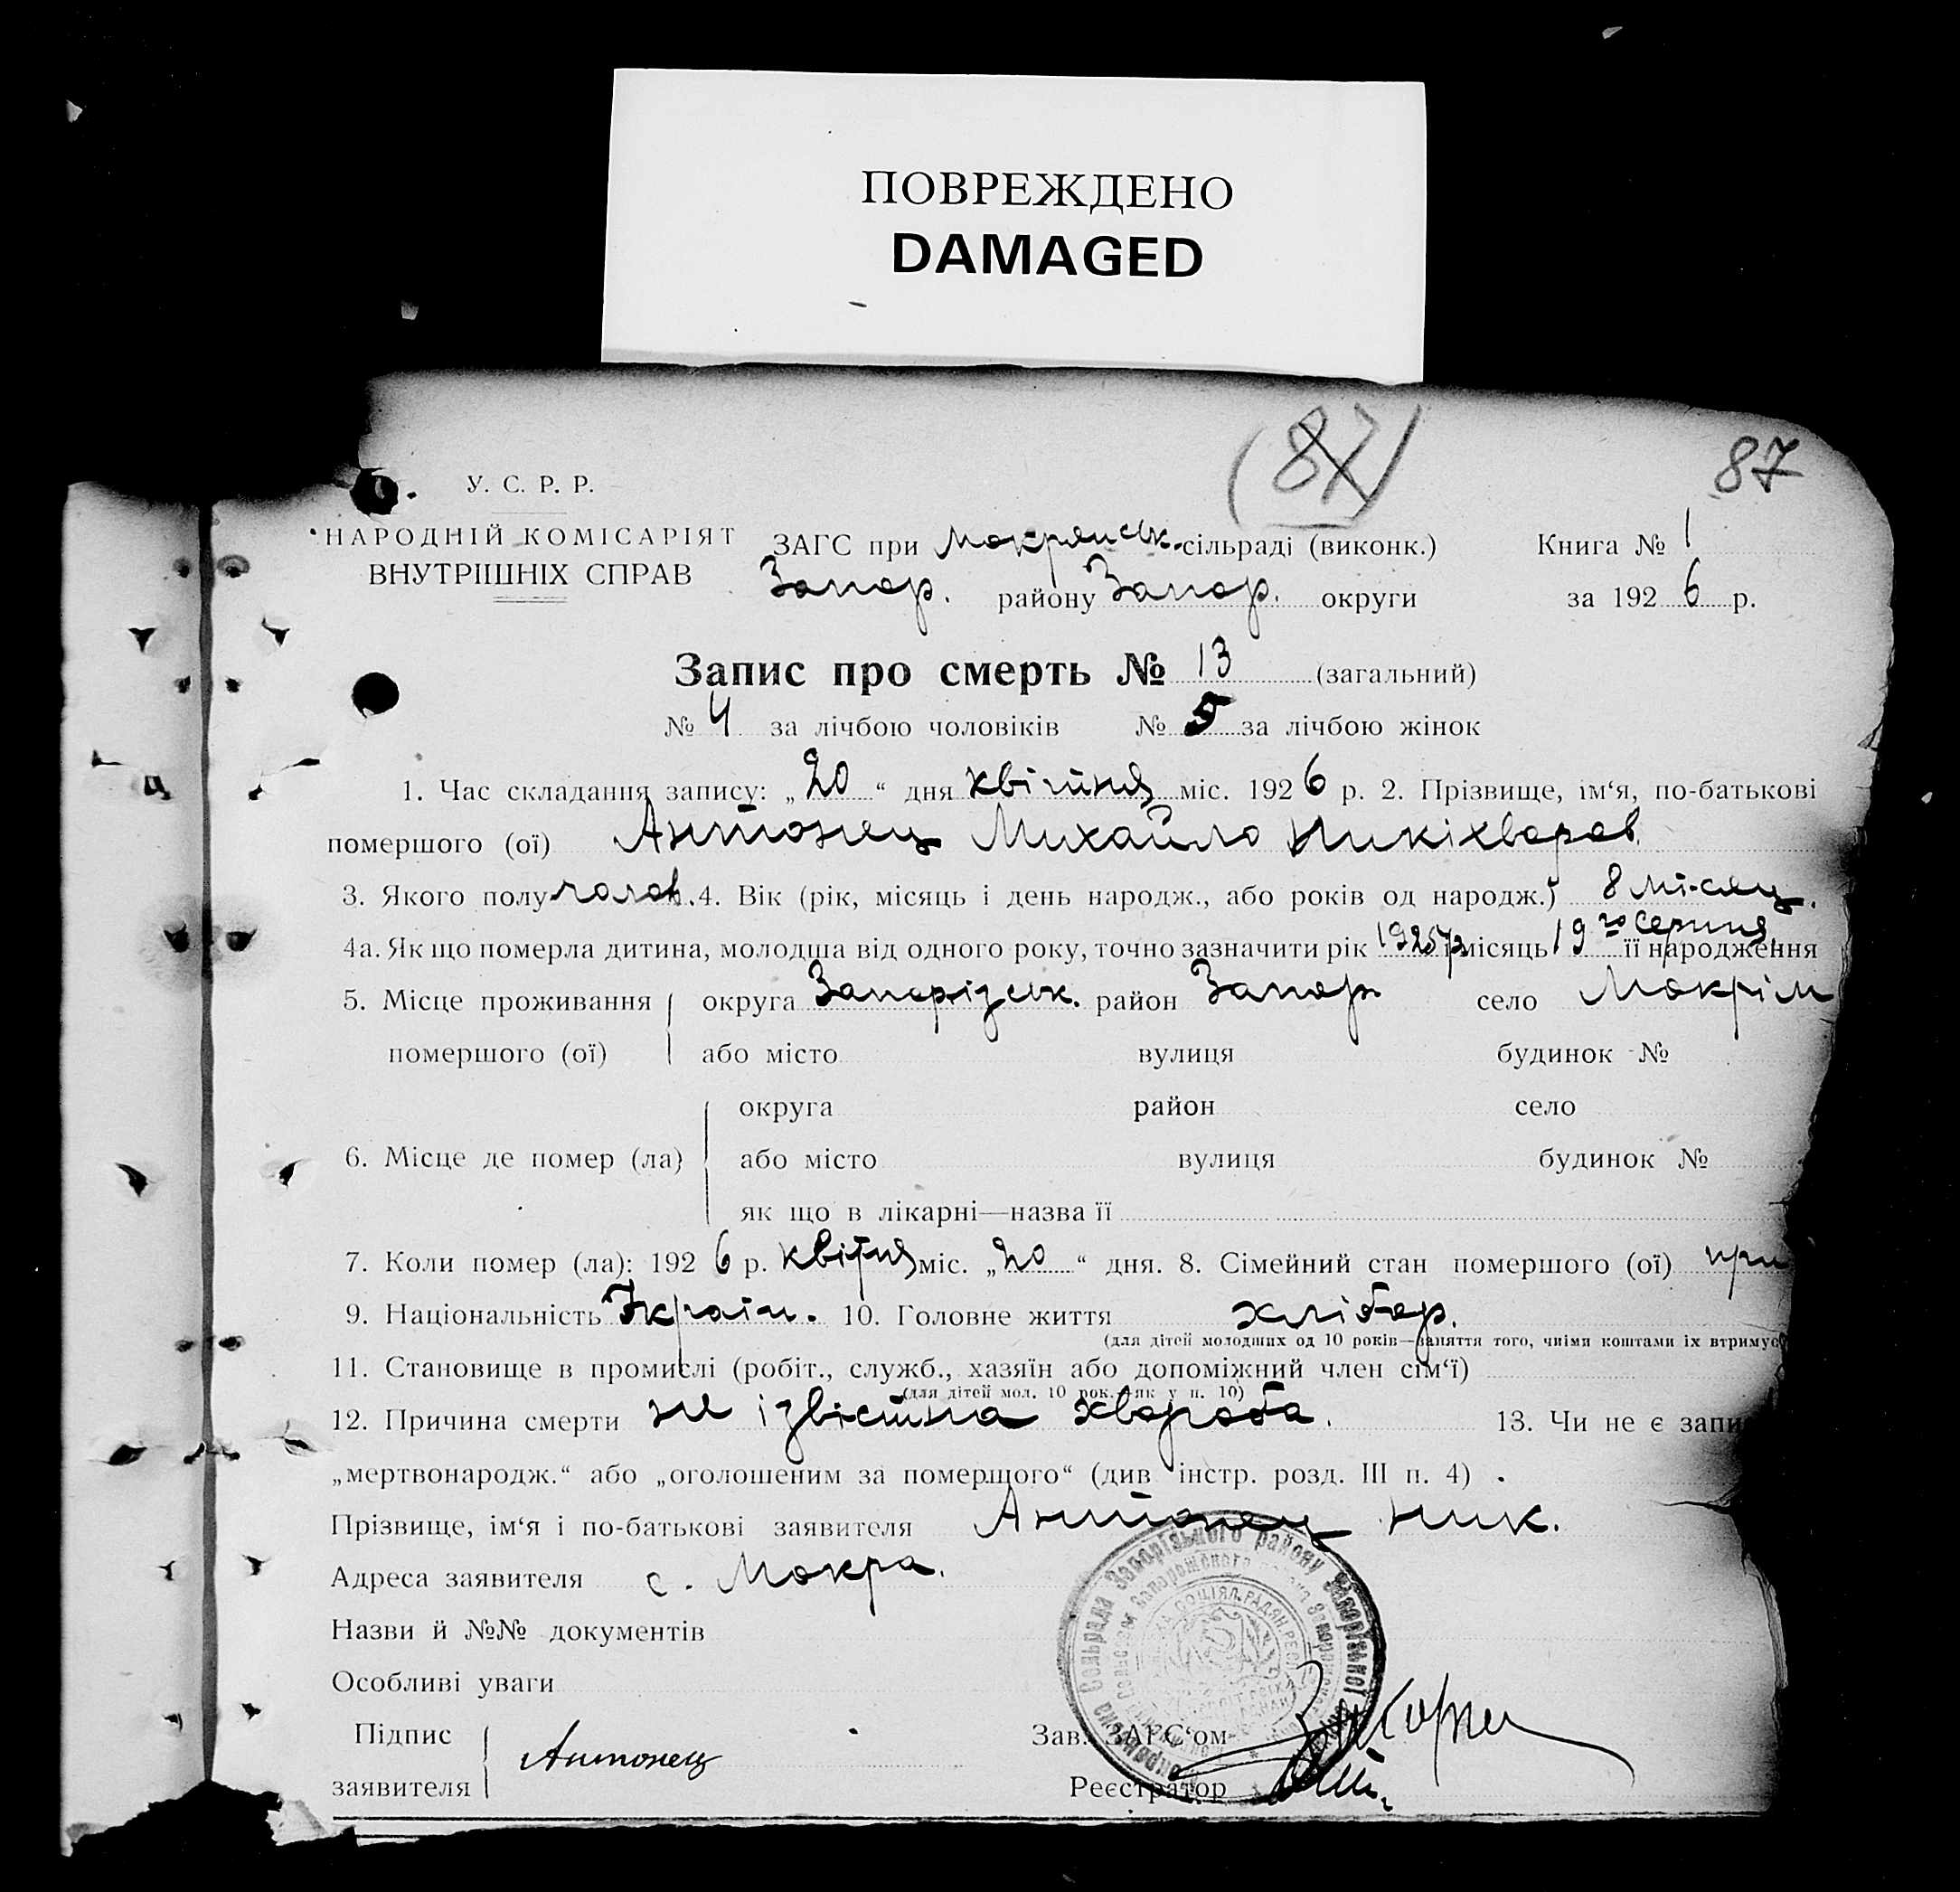 ПОВРЕЖДЕНО
DAMAGED
(87)
87
У. С. Р. Р.
НАРОДНІЙ КОМІСАРІЯТ
ВНУТРІШНІХ СПРАВ
ЗАГС при Мокрянськ. сільраді (виконк.) Книга № 1
Запор. району Запор. округи за 1926 р.
Запис про смерть № 13 (загальний)
№ 4 за лічбою чоловіків № 5 за лічбою жінок
1. Час складання запису: „20“ дня квітня міс. 1926 р. 2. Прізвище, ім‘я, по-батькові
помершого (ої) Антонец Михайло Никіхваров.
3. Якого полу чолов. 4. Вік (рік, місяць і день народж., або років од народж.) 8 місяц.
4а. Як що померла дитина, молодша від одного року, точно зазначити рік 1925 р місяць 19го серпня її народження
5. Місце проживання округа Запорізськ. район Запор. село Мокрім
помершого (ої) або місто вулиця будинок №
округа район село
6. Місце де помер (ла) або місто вулиця будинок №
як що в лікарні—назва її
7. Коли помер (ла): 1926 р. квітня міс. „20“ дня. 8. Сімейний стан помершого (ої) при
9. Національність Україн. 10. Головне життя хлібор.
(для дітей молодших од 10 років—заняття того, чиїми коштами їх втримує
11. Становище в промислі (робіт., служб., хазяїн або допоміжний член сім‘ї)
(для дітей мол. 10 рок.—як у п. 10)
12. Причина смерти не ізвістна хвороба. 13. Чи не є запи
„мертвонародж.“ або „оголошеним за померщого“ (див інстр. розд. III п. 4)
Прізвище, ім‘я і по-батькові заявителя Антонец Ник.
Адреса заявителя с. Мокра.
Назви й №№ документів
Особливі уваги
Підпис
заявителя Антонец
Зав. ЗАГС‘ом
Реєстратор
Сельрада Запорізького району Запорізької
СОЦІЯЛ. РАДЯН.